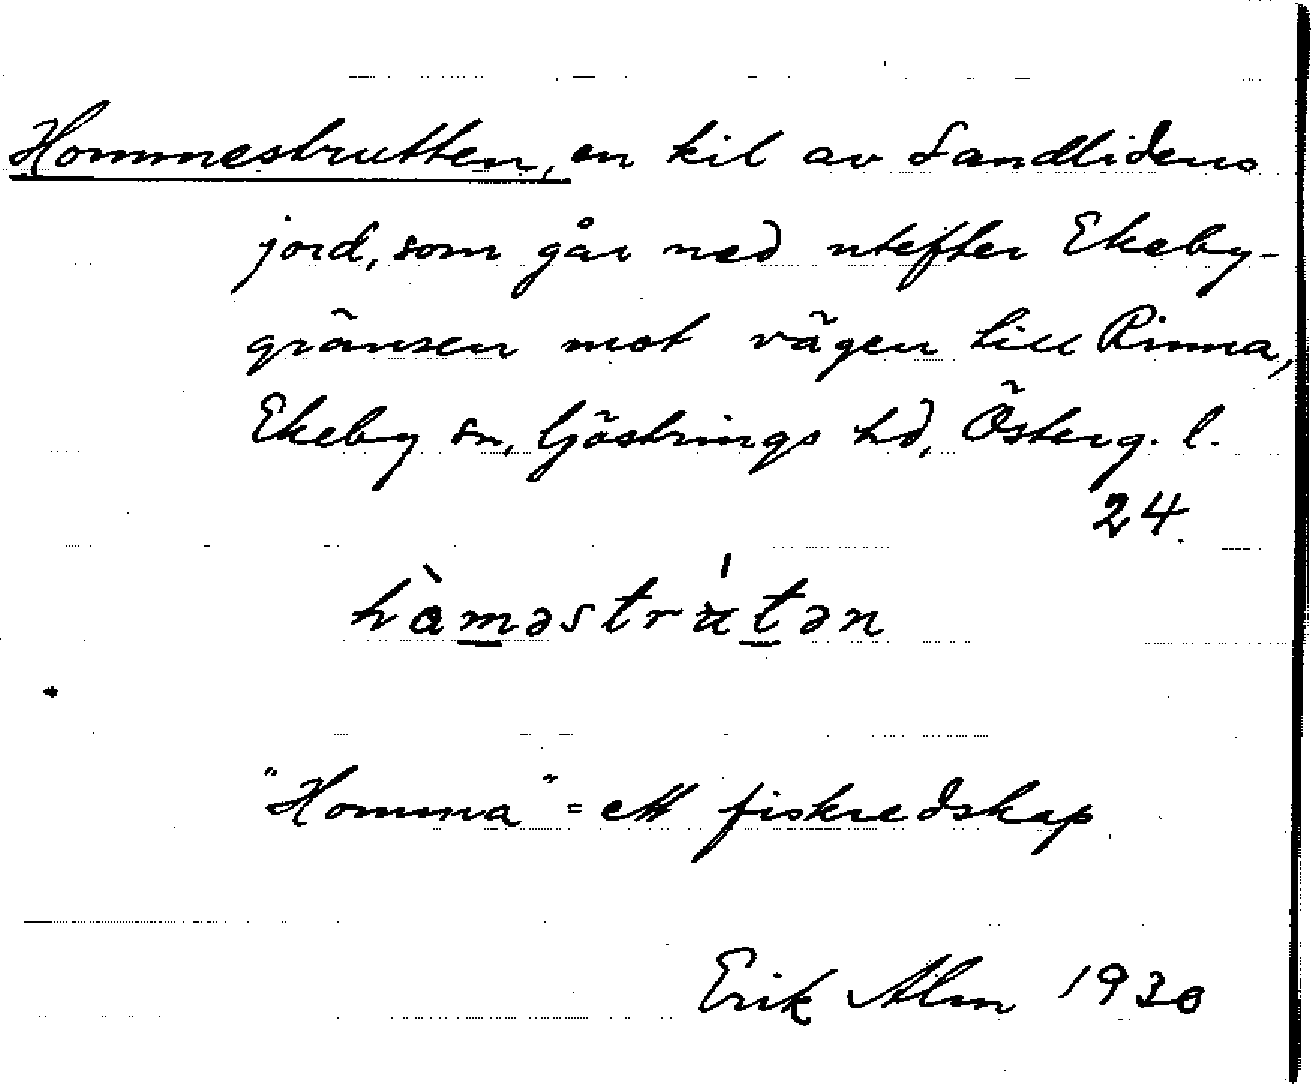 Hommestrutten, en kil av Sandlidens
jord, som går ned utefter Ekeby-
gränsen mot vägen till Rinna,
Ekeby sn, Göstrings hd, Österg. l.
24.
"Homma" = ett fiskredskap
Erik Alm 1930